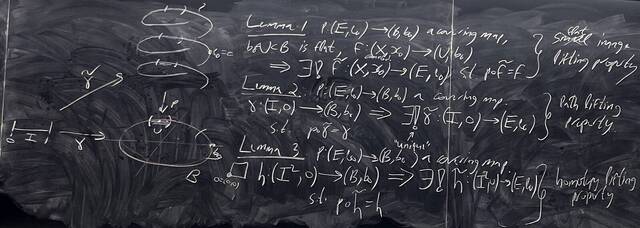 Lemma 1 p:(E,e₀)→(B,b₀) a covering map,
b₀∈U⊂B is flat, f:(X,x₀)→(U,b₀)
⇒ ∃! f̃:(X,x₀)→(E,e₀) s.t. p∘f̃=f
flat
small image
lifting property
Lemma 2 p:(E,e₀)→(B,b₀) a covering map.
γ:(I,0)→(B,b₀) ⇒ ∃! γ̃:(I,0)→(E,e₀)
s.t. p∘γ̃=γ
"unique"
Path lifting
property.
Lemma 3 p:(E,e₀)→(B,b₀) a covering map
h:(I²,0)→(B,b₀) ⇒ ∃! h̃:(I²,0)→(E,e₀)
s.t. p∘h̃=h
homotopy lifting
property
γ̃
e₀
p
0 I 1
γ
U
b₀
B